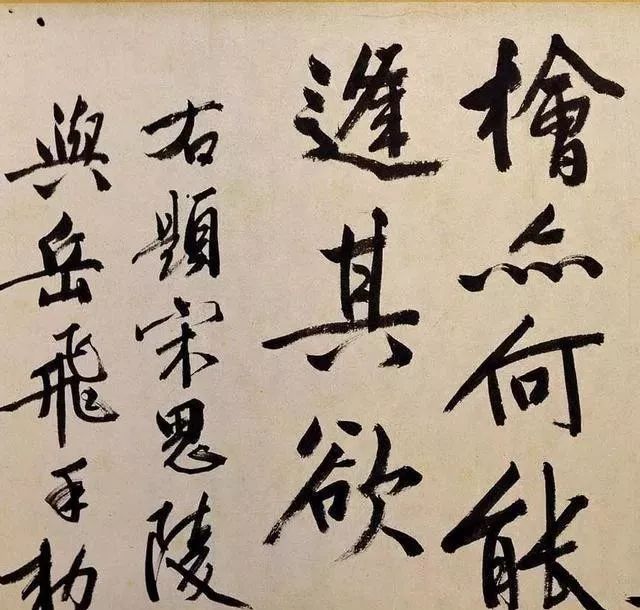 檜亦何能
逢其欲
右題宋思陵
與岳飛手勅